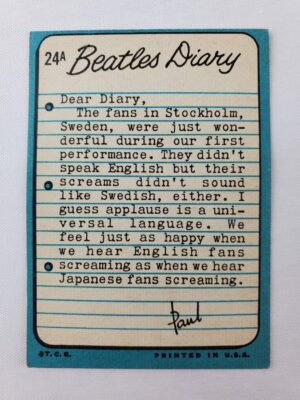 24A Beatles Diary
Dear Diary,
The fans in Stockholm,
Sweden, were just won-
derful during our first
performance. They didn't
speak English but their
screams didn't sound
like Swedish, either. I
guess applause is a uni-
versal language. We
feel just as happy when
we hear English fans
screaming as when we hear
Japanese fans screaming.
Paul
©T. C. G. PRINTED IN U.S.A.